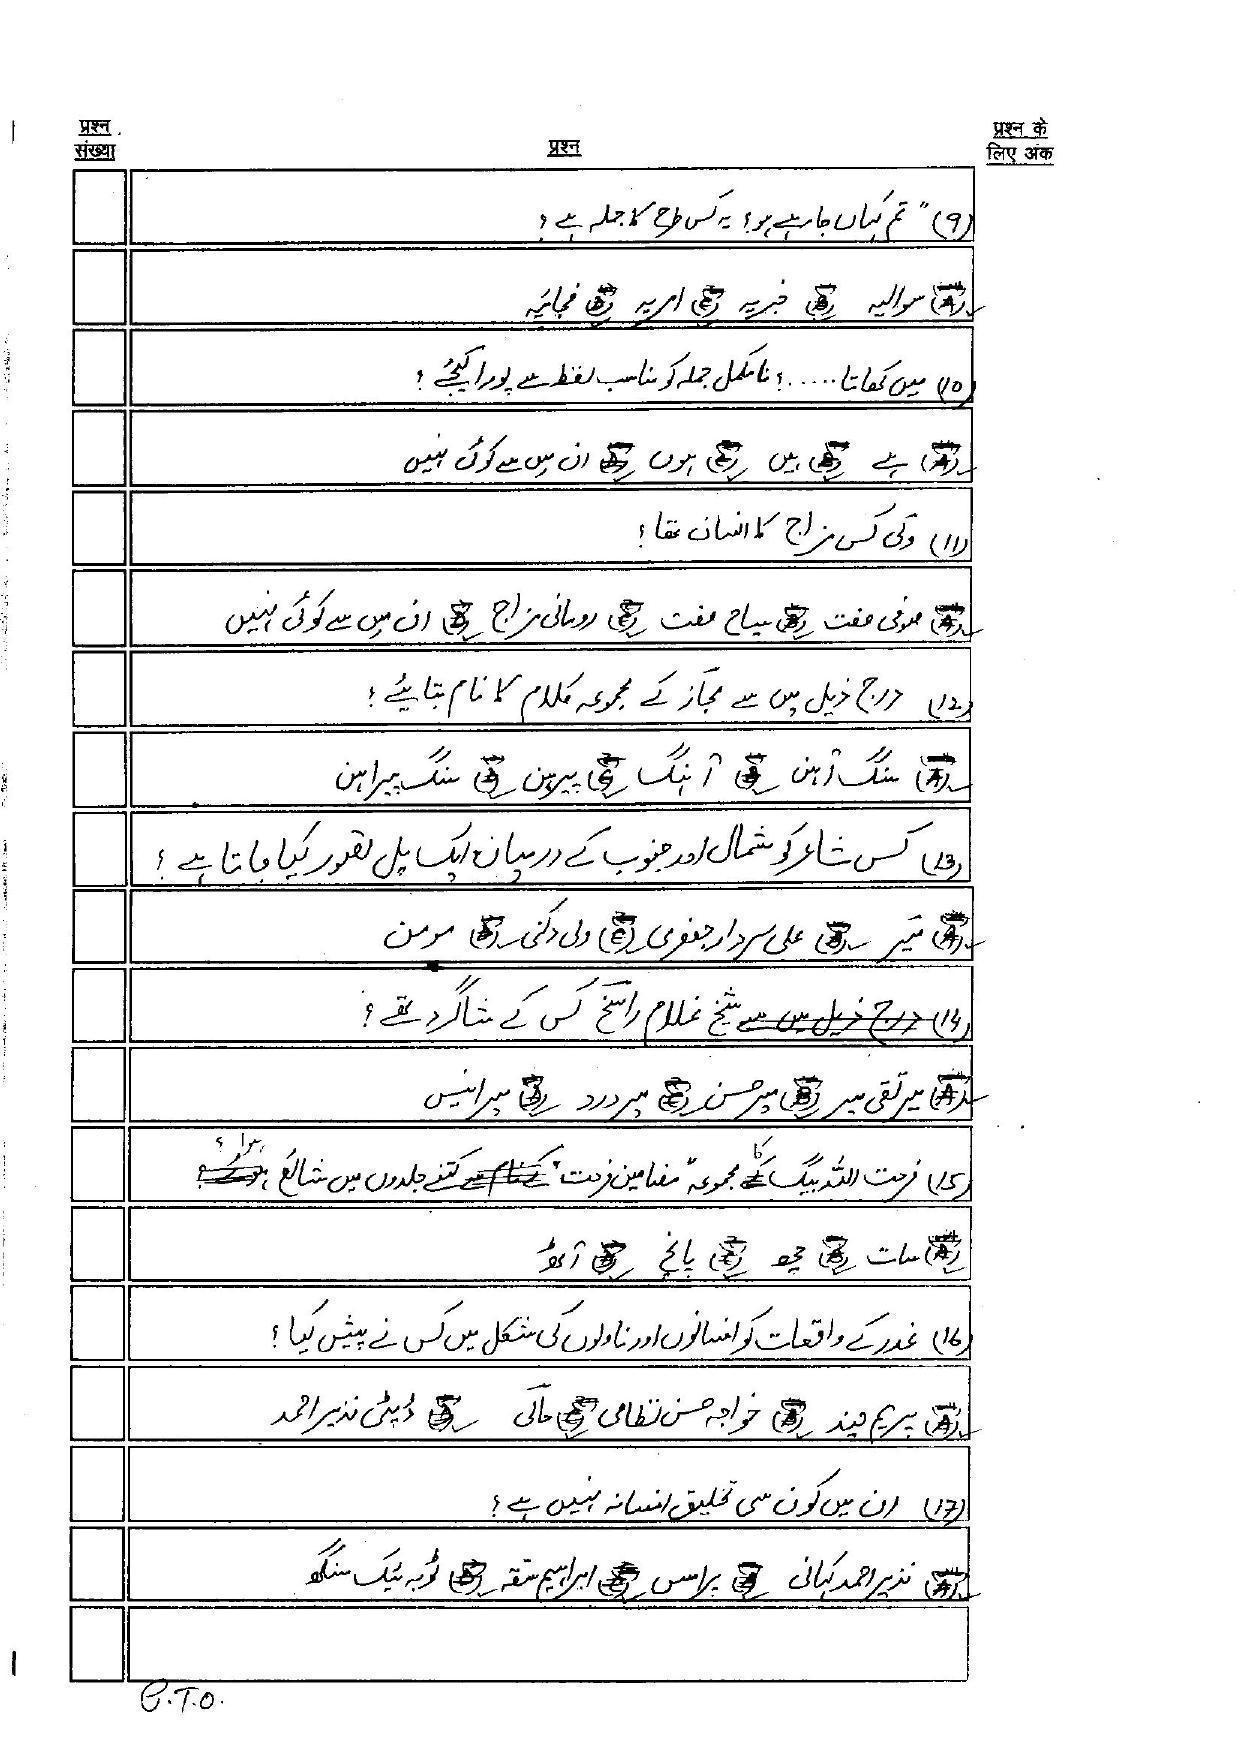 प्रश्न संख्या
प्रश्न
प्रश्न के लिए अंक
(9) "تم کہاں جا رہے ہو؟ یہ کس طرح کا جملہ ہے؟
(A) سوالیہ (B) خبریہ (C) امریہ (D) فجائیہ
(10) میں کھاتا .....؟ نامکمل جملہ کو مناسب لفظ سے پورا کیجئے؟
(A) ہے (B) ہیں (C) ہوں (D) ان میں سے کوئی نہیں
(11) ولی کس مزاج کا انسان تھا؟
(A) صوفی صفت (B) سیاح صفت (C) رومانی مزاج (D) ان میں سے کوئی نہیں
(12) درج ذیل میں سے مجاز کے مجموعہ کلام کا نام بتایئے؟
(A) سنگ آہن (B) آہنگ (C) پیرہن (D) سنگ پیراہن
(13) کس شاعر کو شمال اور جنوب کے درمیان ایک پل تصور کیا جاتا ہے؟
(A) میر (B) علی سردار جعفری (C) ولی دکنی (D) مومن
(14) درج ذیل میں سے شیخ غلام راسخ کس کے شاگرد تھے؟
(A) میر تقی میر (B) میر حسن (C) میر درد (D) میر انیس
(15) فرحت اللہ بیگ کا مجموعہ "مضامین فرحت" کتنے جلدوں میں شائع ہوا؟
(A) سات (B) چھ (C) پانچ (D) آٹھ
(16) غدر کے واقعات کو افسانوں اور ناولوں کی شکل میں کس نے پیش کیا؟
(A) پریم چند (B) خواجہ حسن نظامی (C) حالی (D) ڈپٹی نذیر احمد
(17) ان میں کون سی تخلیق افسانہ نہیں ہے؟
(A) نذیر احمد کہانی (B) (C) ابراہیم سقہ (D) ٹوبہ ٹیک سنگھ
P.T.O.